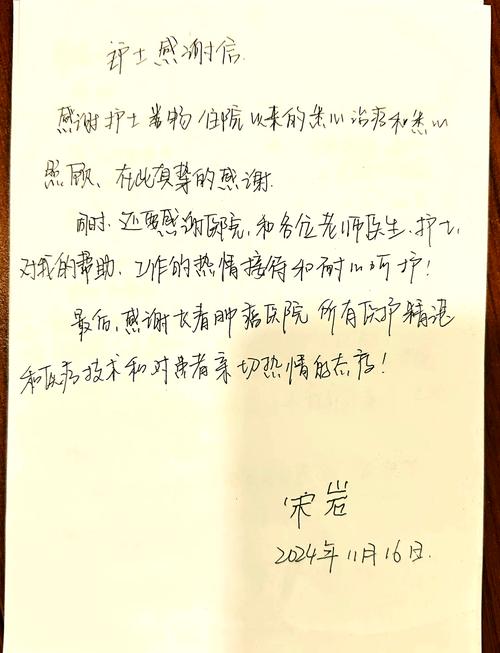 护士感谢信
感谢护士 住院以来的悉心治疗和悉心
照顾、在此真挚的感谢
同时.还要感谢医院,和各位老师医生.护士,
对我的帮助.工作的热情接待和耐心呵护!
最后,感谢长春肿瘤医院 所有医护精湛
和医疗技术和对患者亲切热情的态度!
宋岩
2024年11月16日.